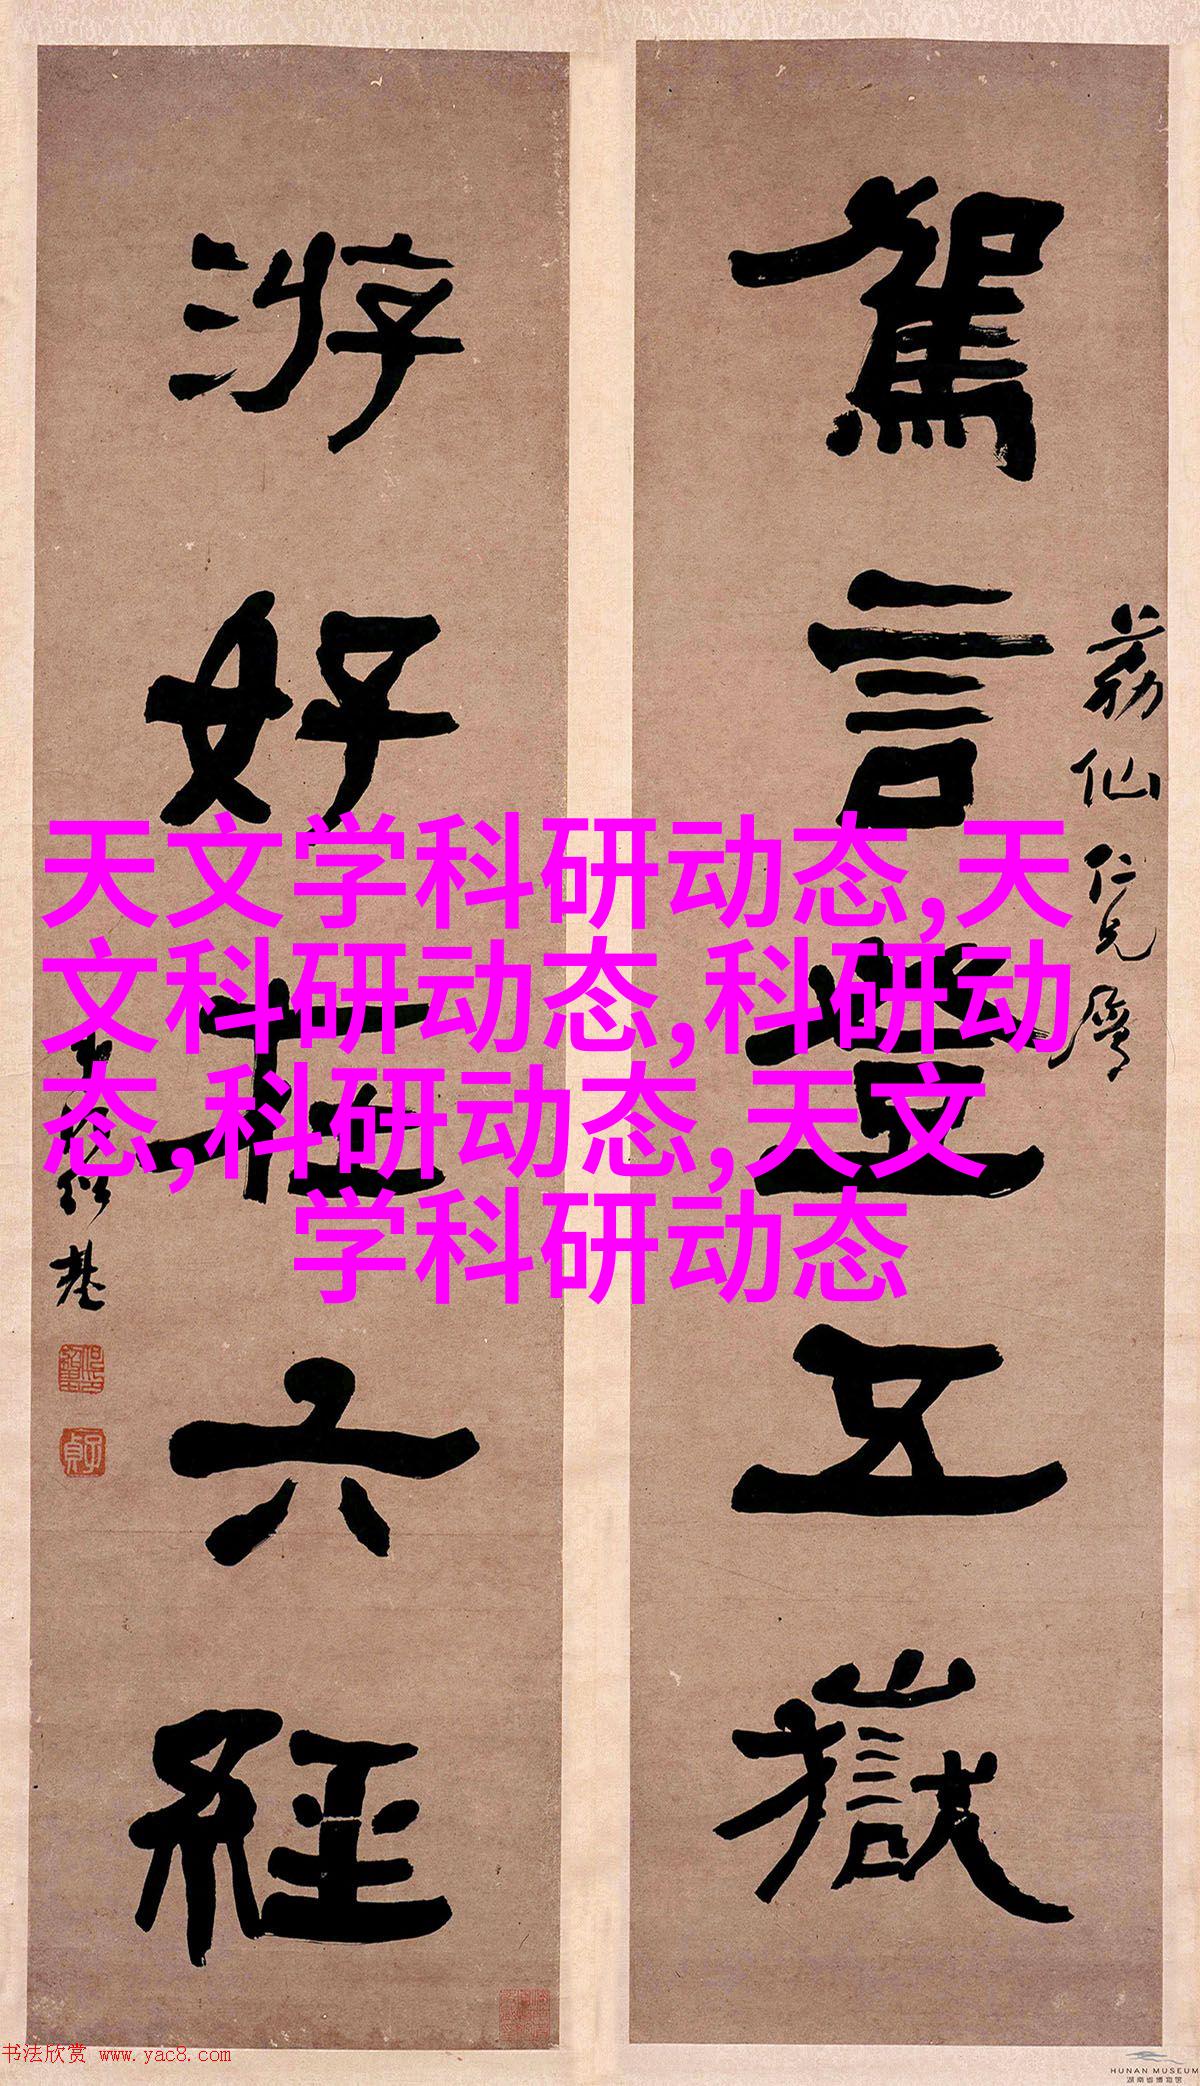 駕言登五嶽
荔仙仁兄屬
游好在六經
何紹基
天文学科研动态,天
文科研动态,科研动
态,科研动态,天文
学科研动态
书法欣赏 www.yac8.com
HUNAN MUSEUM
湖南省博物馆